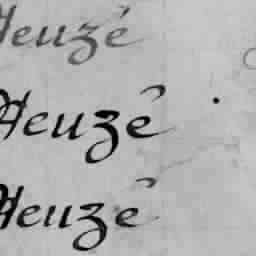 Heuzé
Heuzé
Heuzé